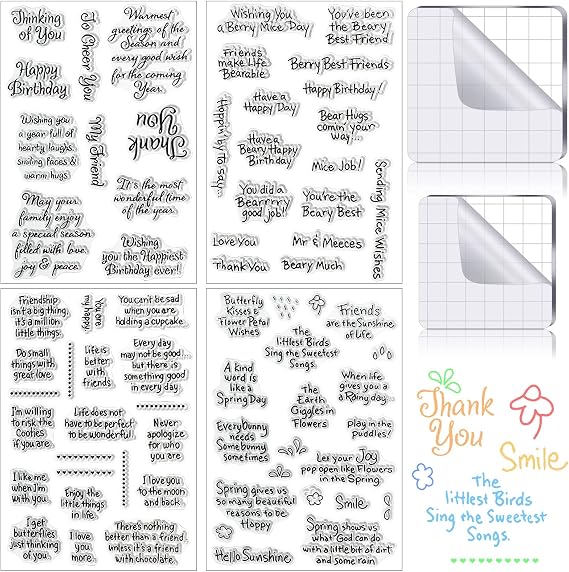 Thinking
of You
To Cheer You
Warmest
greetings of the
Season and
every good wish
for the coming
Year.
Happy
Birthday
My Friend
Thank
You
Wishing you
a year full of
hearty laughs,
smiling faces &
warm hugs.
It's the most
wonderful time
of the year.
May your
family enjoy
a special season
filled with love,
joy & peace.
Wishing
you the Happiest
Birthday ever!!
Wishing You
a Berry Mice Day
You've been
the Beary
Best Friend
Friends
make life
Bearable
Berry Best Friends
Happy Birthday!
Have a
Happy Day
Hoppin by to say...
Bear Hugs
comin' your
way...
Have a
Beary Happy
Birthday!
Mice Job!
Sending Mice Wishes
You did a
Bearrrry
good job!
You're the
Beary Best
Love You
Mr & Meeces
Thank You
Beary Much
Friendship
isn't a big thing,
it's a million
little things.
You are
my happy.
You can't be sad
when you are
holding a cupcake.
Do small
things with
great love.
Life is
better
with
friends.
Every day
may not be good...
but there is
something good
in every day.
I'm willing
to risk the
Cooties
if you are.
Life does not
have to be perfect
to be wonderful.
Never
apologize
for who
you are.
I like me
when I'm
with you.
Enjoy the
little things
in life.
I love you
to the moon
and back.
I get
butterflies
just thinking
of you.
I love
you
more.
There's nothing
better than a friend,
unless it's a friend
with chocolate.
Butterfly
Kisses &
Flower Petal
Wishes
Friends
are the Sunshine
of Life
The
littlest Birds
Sing the Sweetest
Songs.
A kind
word is
like a
Spring Day
When life
gives you a
a Rainy day...
The
Earth
Giggles in
Flowers
play in the
puddles!
Every Bunny
needs
Some bunny
sometimes
Let your Joy
pop open like Flowers
in the Spring.
Spring gives us
so many beautiful
reasons to be
Happy
Smile
Spring shows us
what God can do
with a little bit of dirt
and some rain
Hello Sunshine
Thank
You
Smile
The
littlest Birds
Sing the Sweetest
Songs.